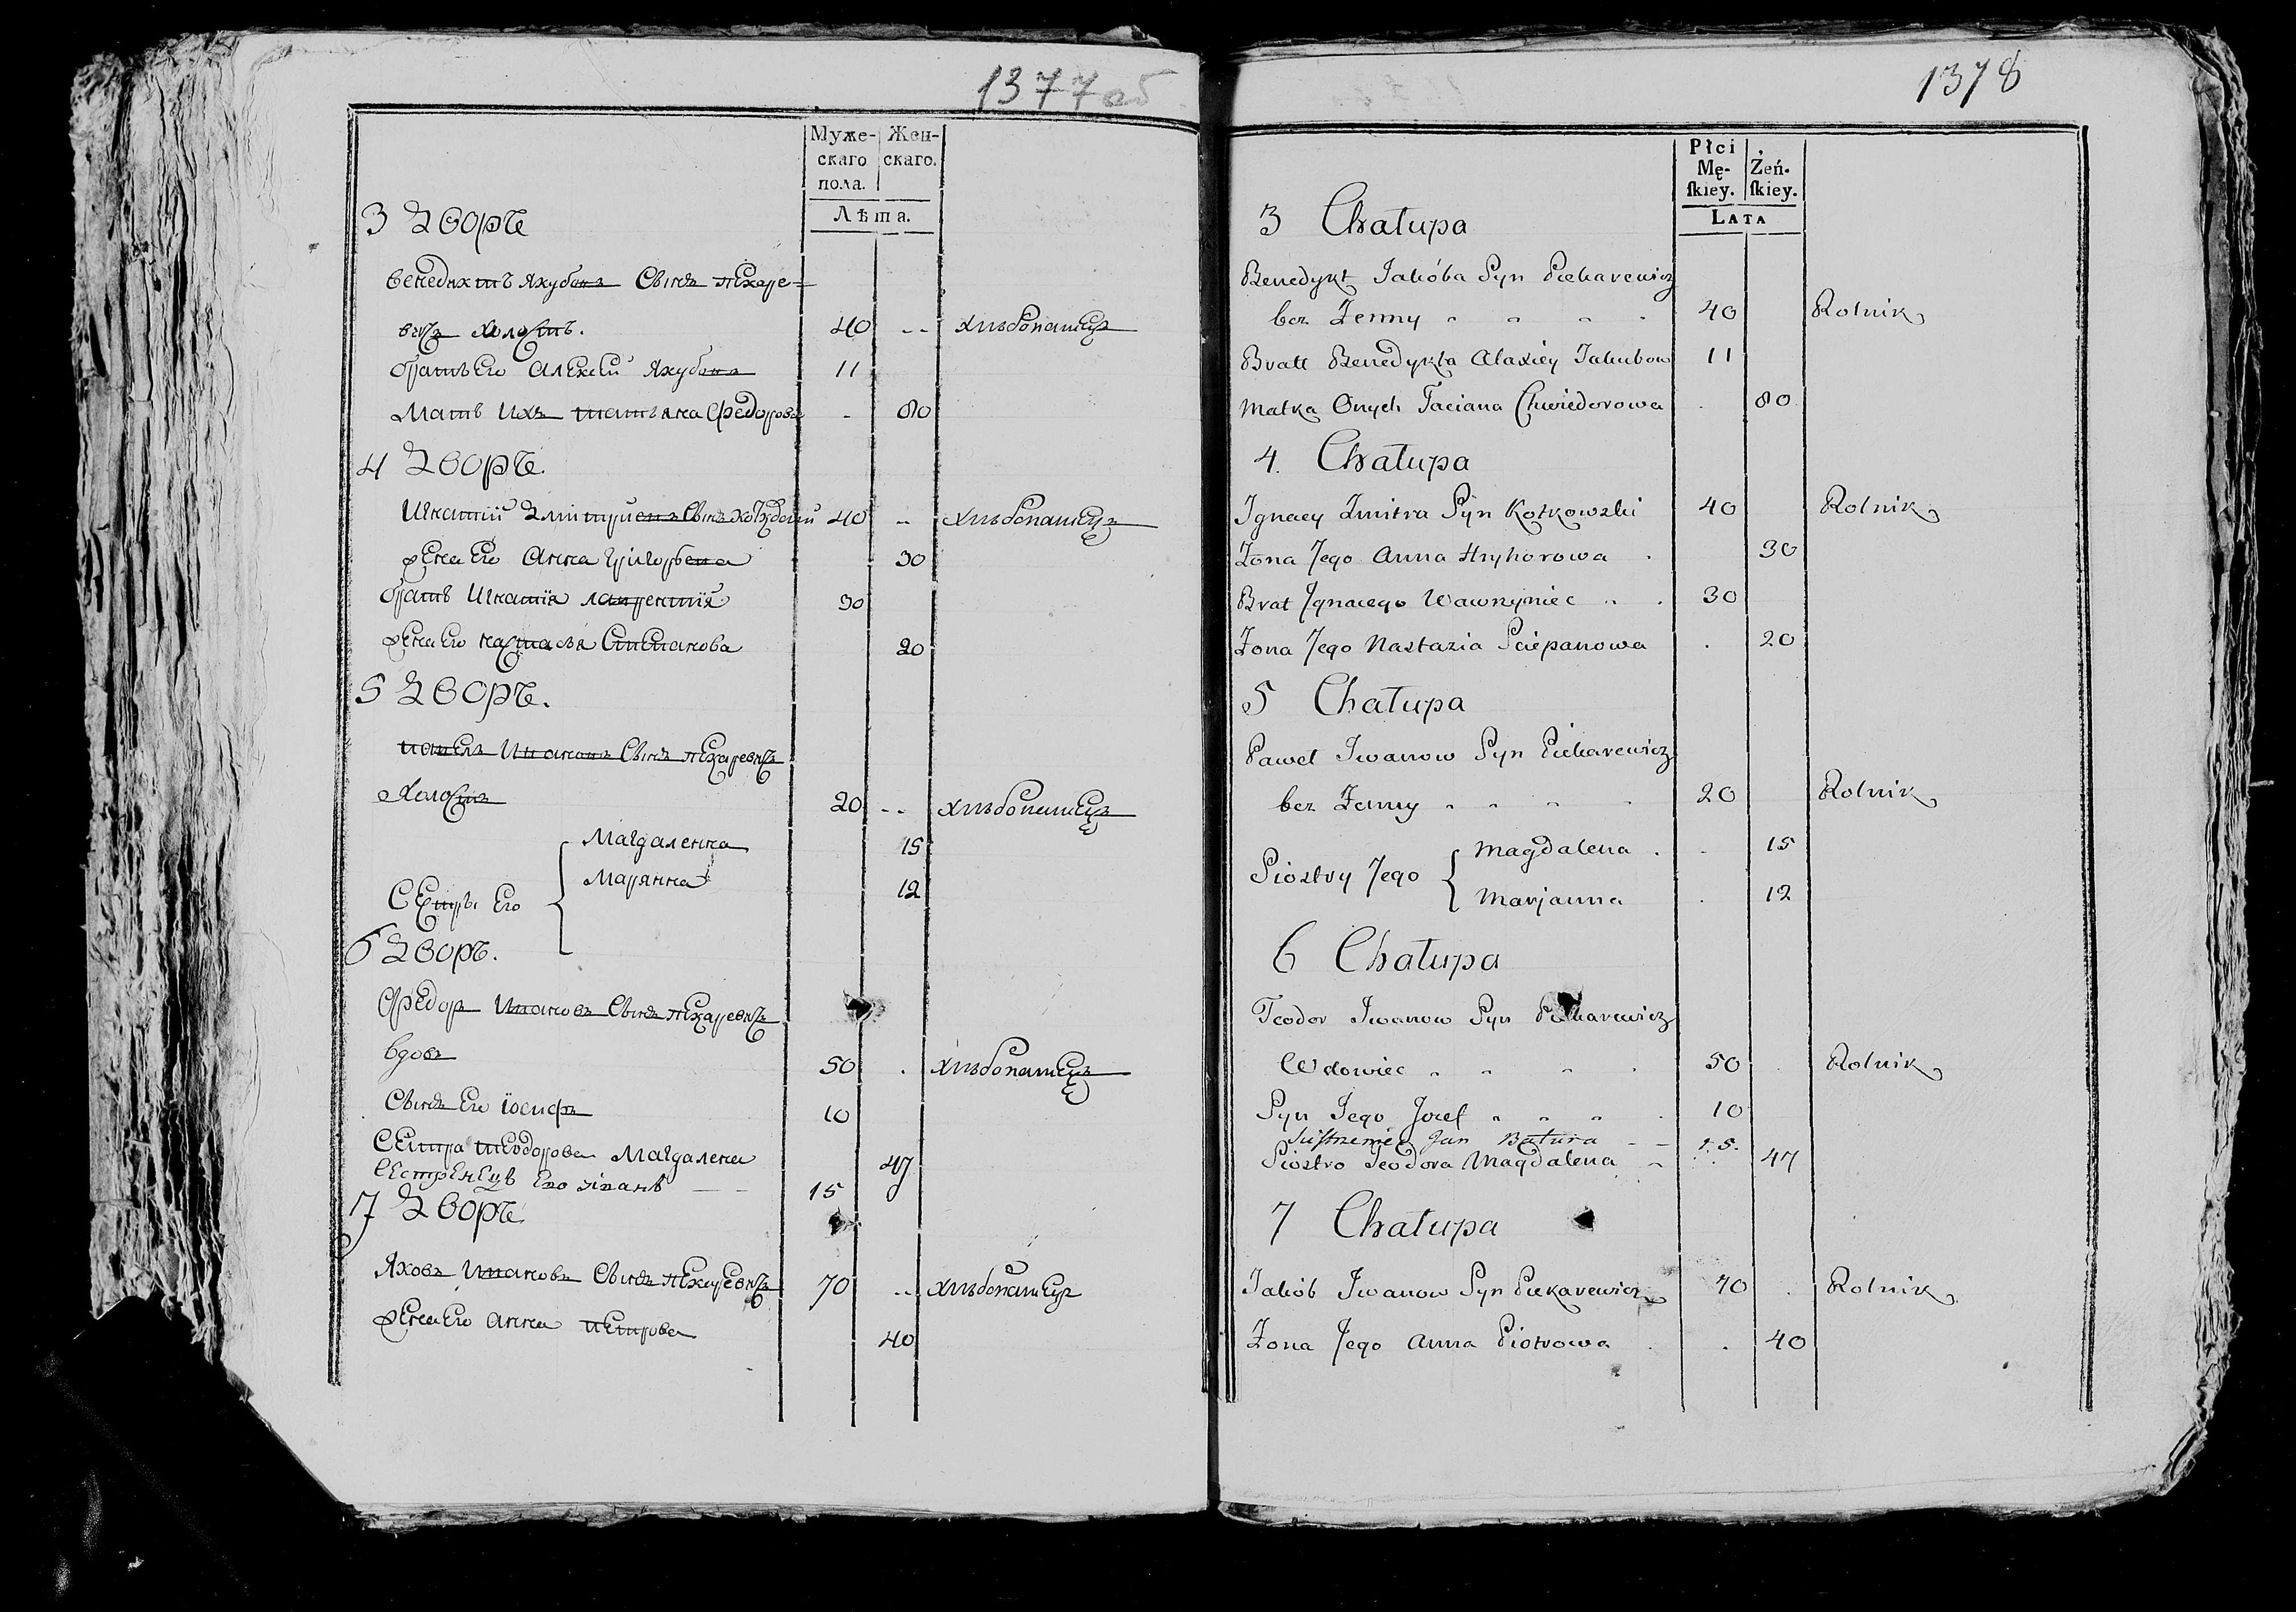 1377об
Муже-
скаго
пола.
Жен-
скаго.
Лѣта.
3 Дворъ
Бенедиктъ Якубовъ Сынъ пекаре-
вичъ Холостъ. 40 -- хлѣбопашецъ
братъ Его Алексей Якубовъ 11
Мать Ихъ татьяна Федорова - 80
4 Дворъ.
Игнатій Дмитриевъ Сынъ 40 -- хлѣбопашецъ
жена Его Анна Григорьева 30
братъ Игнатія лаврентий 30
жена Его настасья Степанова 20
5 Дворъ.
павелъ Ивановъ Сынъ пекаревичъ
Холостъ 20 -- хлѣбопашецъ
Магдаленна 15
Марянна 12
Сестры Его
6 Дворъ.
Федоръ Ивановъ Сынъ пекаревичъ
вдовъ 50 . хлѣбопашецъ
Сынъ Его іосифъ 10
Сестра теодорова Магдалена 47
Сестренецъ Его 15
7 Дворъ
Яковъ Ивановъ Сынъ пекаревичъ 70 -- хлѣбопашецъ
жена Его анна петрова 40
1378
Płci
Mę-
skiey.
Żeń-
skiey.
Lata
3 Chałupa
Benedykt Jakóba Syn Piekarewicz
bez Żenny 40 Rolnik
Bratt Benedykta Alaxiey Jakubow 11
Matka Onych Taciana Chwiedorowa . 80
4. Chałupa
Ignacy Zmitra Syn Kotkowski 40 Rolnik
Żona Jego Anna Hryhorowa . 30
Brat Ignacego Wawrzyniec 30
Żona Jego Nastazia Sciepanowa . 20
5 Chałupa
Paweł Iwanow Syn Piekarewicz
bez Żenny 20 Rolnik
Siostry Jego
Magdalena . - 15
Marjanna . 12
6 Chałupa
Teodor Iwanow Syn Piekarewicz
Wdowiec 50 . Rolnik
Syn Jego Jozef 10
Sistrzeniec Jan Batura -- 15.
Siostro Teodora Magdalena 47
7 Chałupa
Jakób Iwanow Syn Piekarewicz 70 . Rolnik
Żona Jego Anna Piotrowa . . 40